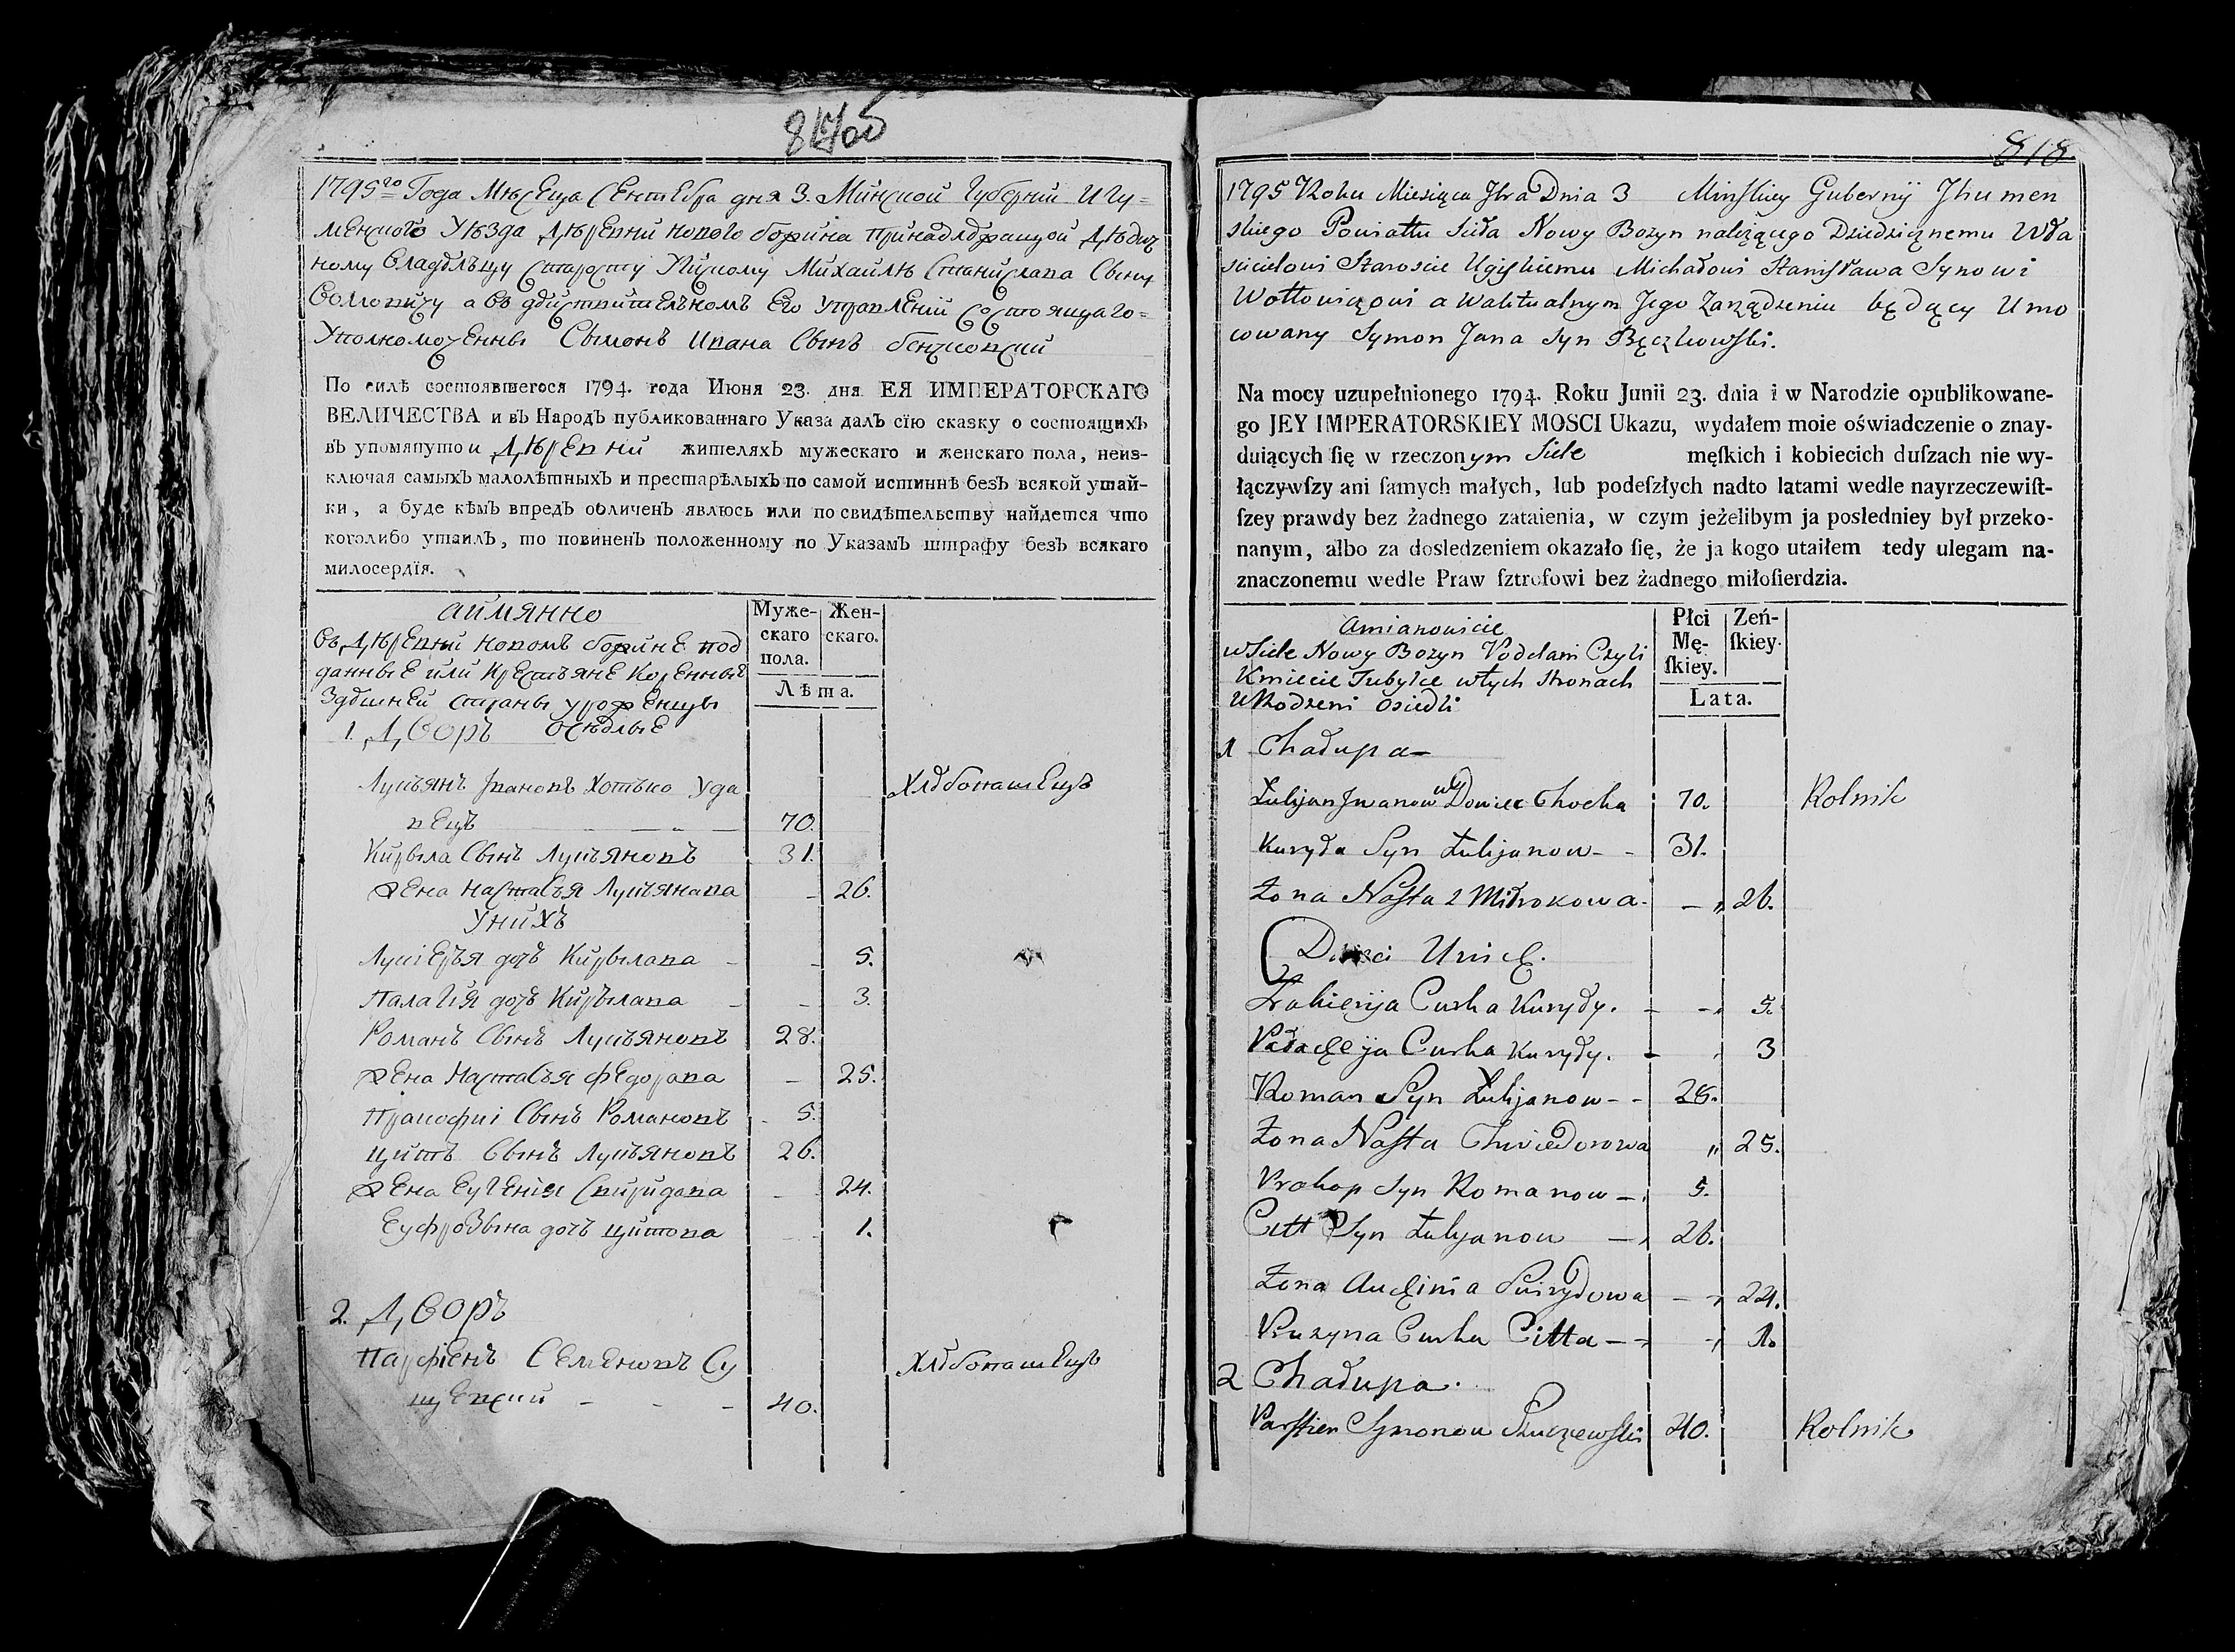 817об
1795го Года Мѣсеца Сентебра дня 3. Минской Губерний Игу=
менского Уѣзда Дѣревни нового божина принадлѣжащой Дѣдич
ному Владѣлъцу Старосту Михаилѣ Станислава Сыну
Воловичу а въ дѣйствителъномъ Его Управлений состоящаго=
Уполномоченны Сымонъ Ивана Сынъ бенчковский
По силѣ состоявшегося 1794. года Июня 23. дня ЕЯ ИМПЕРАТОРСКАГО
ВЕЛИЧЕСТВА и въ Народъ публикованнаго Указа далъ сїю сказку о состоящихъ
въ упомянутои Дѣревни жителяхъ мужескаго и женскаго пола, неиз-
ключая самыхъ малолѣтныхъ и престарѣлыхъ по самой истиннѣ безъ всякой утай-
ки, а буде кѣмъ впредъ обличенъ явлюсь или по свидѣтельству найдется что
коголибо утаилъ, то повиненъ положенному по Указамъ штрафу безъ всякаго
милосердїя.
аймянно
Муже-скаго пола.
Жен-скаго.
Лѣта.
Въ Дѣревни новомъ божине под
данные или Крестъяне Коренные
Здѣшней страны уроженцы
1. Дворъ осѣдлые
Лукъянъ Ивановъ Хотько Уда
вецъ 70. Хлѣбопашецъ
Кирыла Сынъ Лукъяновъ 31.
Жена Настасъя Лукъянова 26.
У нихъ
Лукіеръя дочъ Кирылава 5.
Палагия дочъ Кирылава 3.
Романъ Сынъ Лукъяновъ 28.
Жена Настасъя Федорава 25.
Пракофиі Сынъ Романовъ 5.
Цитъ Сынъ Лукъяновъ 26.
Жена Еугения Спиридава 24.
Еуфрозына дочъ Цитова 1.
2. Дворъ
Парфіенъ Семеновъ Су
щевский 40. Хлѣбопашецъ
818
1795 Roku Miesiąca Jbra Dnia 3 Minſkiey Gubernij Jhumen
skiego Powiattu Sieła Nowy Bozyn należącego Dziedzicznemu Wła
scicielowi Staroscie Michałowi Staniſława Synowi
Wołłowiczowi a Waktualnym Jego Zarządzeniu będący Umo
cowany Symon Jana Syn Bęczkowſki.
Na mocy uzupełnionego 1794. Roku Junii 23. dnia i w Narodzie opublikowane-
go JEY IMPERATORSKIEY MOSCI Ukazu, wydałem moie oświadczenie o znay-
duiących ſię w rzeczonym Siele męſkich i kobiecich duſzach nie wy-
łączywſzy ani ſamych małych, lub podeſzłych nadto latami wedle nayrzeczewiſt-
ſzey prawdy bez żadnego zataienia, w czym jeżelibym ja posledniey był przeko-
nanym, albo za dosledzeniem okazało ſię, że ja kogo utaiłem tedy ulegam na-
znaczonemu wedle Praw ſztrofowi bez żadnego miłoſierdzia.
Amianowicie
Płci Mę-ſkiey.
Zeń-ſkiey.
Lata.
w Siele Nowy Bozyn Poddani Czyli
Kmiecie Tubylce w tych stronach
Urodzeni Osiedli
1 Chałupa
Łukjan Jwanow Dowiec Choćka 70. Rolnik
Kuryła Syn Łukjanow 31.
Żona Nasta 26.
Dzieci Unich.
Łukierija Curka Kuryły. 5.
Pałacheija Curka Kuryły. 3
Roman Syn Łukjanow 28.
Żona Nasta Chwiedorowa 25.
Prakop Syn Romanow 5.
Citt Syn Łukjanow 26.
Żona Auchinia Swirydowa 24.
Pruzyna Curka Citta 1.
2 Chałupa.
Parfien Symonow Suszczewſki 40. Rolnik